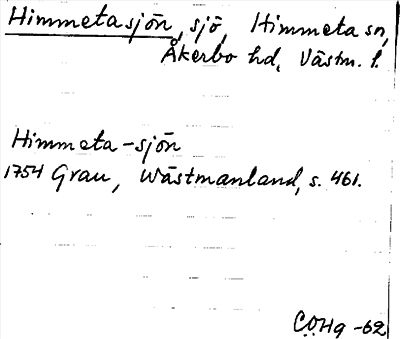 Himmetasjön, sjö, Himmeta sn,
Åkerbo hd, Västm. l.
Himmeta-sjön
1754 Grau, Wästmanland, s. 461.
COHg -62